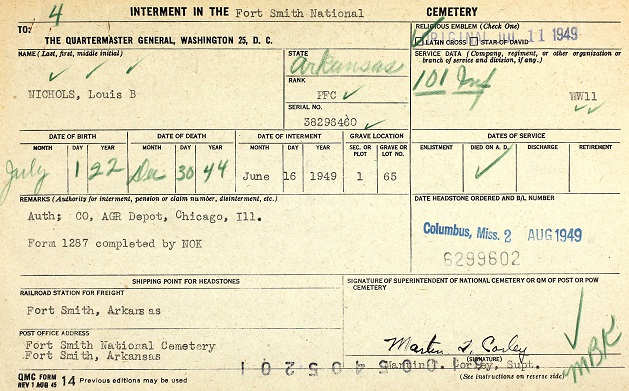 4
INTERMENT IN THE Fort Smith National CEMETERY
TO:
THE QUARTERMASTER GENERAL, WASHINGTON 25, D. C.
RELIGIOUS EMBLEM (Check One)
ORIGINAL JUL 11 1949
LATIN CROSS STAR OF DAVID
NAME (Last, first, middle initial)
NICHOLS, Louis B
STATE
Arkansas
RANK
PFC
SERIAL NO.
38298460
SERVICE DATA (Company, regiment, or other organization or branch of service and division, if any.)
101 Inf
WW11
DATE OF BIRTH DATE OF DEATH DATE OF INTERMENT GRAVE LOCATION DATES OF SERVICE
MONTH DAY YEAR MONTH DAY YEAR MONTH DAY YEAR SEC. OR PLOT GRAVE OR LOT NO. ENLISTMENT DIED ON A. D. DISCHARGE RETIREMENT
July 1 22 Dec 30 44 June 16 1949 1 65
REMARKS (Authority for interment, pension or claim number, disinterment, etc.)
Auth; CO, AGR Depot, Chicago, Ill.
Form 1287 completed by NOK
DATE HEADSTONE ORDERED AND B/L NUMBER
Columbus, Miss. 2 AUG 1949
6299602
SHIPPING POINT FOR HEADSTONES
RAILROAD STATION FOR FREIGHT
Fort Smith, Arkansas
POST OFFICE ADDRESS
Fort Smith National Cemetery
Fort Smith, Arkansas
SIGNATURE OF SUPERINTENDENT OF NATIONAL CEMETERY OR QM OF POST OR POW CEMETERY
Martin T. Corley
(SIGNATURE)
Corley, Supt.
(See instructions on reverse side)
MBK
QMC FORM
REV 1 AUG 45 14 Previous editions may be used